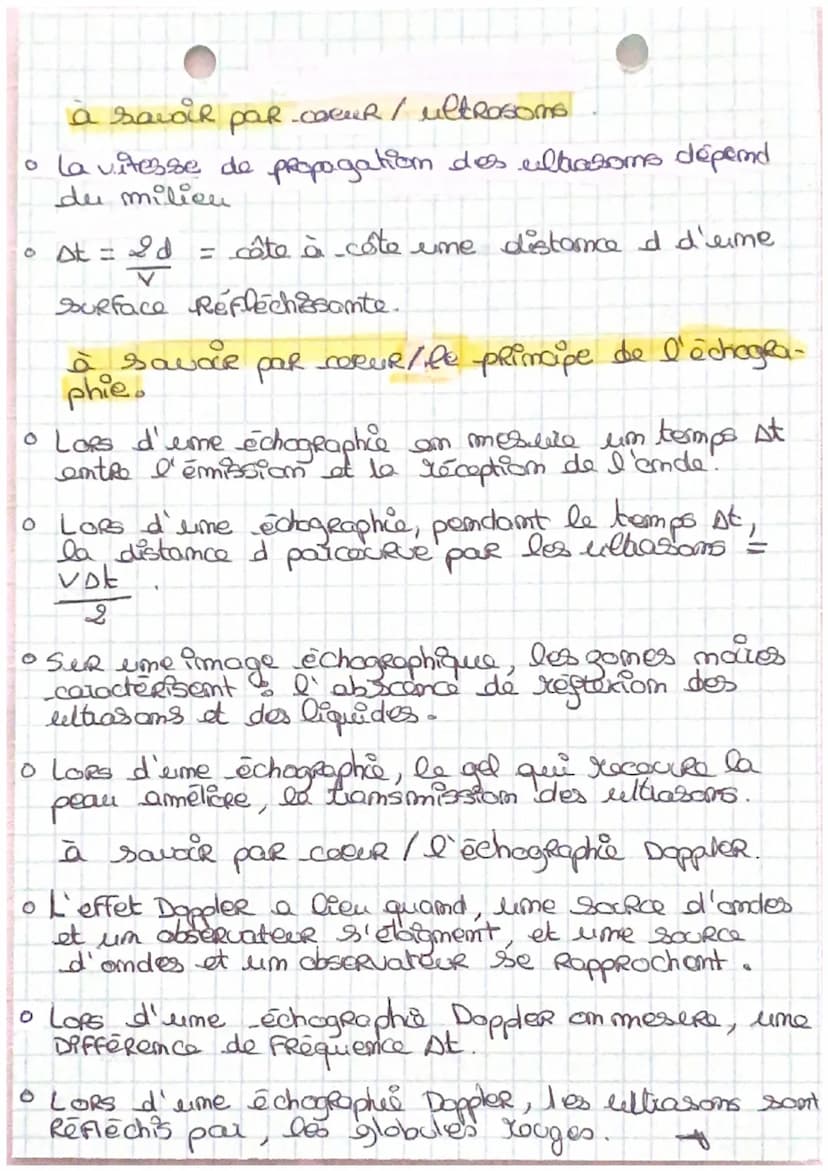 à savoir par coeur / ultrosons
o la vitesse de propagation des ultrasons dépend
du milieu
o Δt = 2d/V = côte à côte une distance d d'une
surface Réfléchissante.
à savoir par coeur / le principe de l'échogra-
phie.
o Lors d'une échographie on mesure un temps Δt
entre l'émission et la réception de l'onde.
o Lors d'une échographie, pendant le temps Δt,
la distance d parcourue par les ultrasons =
VΔt/2.
o Sur une image échographique, les zones noires
caractérisent : l'abscence de réflexion des
ultrasons et des liquides.
o Lors d'une échographie, le gel qui recouvre la
peau améliore, la transmission des ultrasons.
à savoir par coeur / l'échographie Doppler.
o L'effet Doppler a lieu quand, une source d'ondes
et un observateur s'éloignent, et une source
d'ondes et un observateur se Rapprochent.
o Lors d'une échographie Doppler on mesure, une
Différence de Fréquence Δt.
o Lors d'une échographie Doppler, les ultrasons sont
Réfléchis par, les globules rouges. →